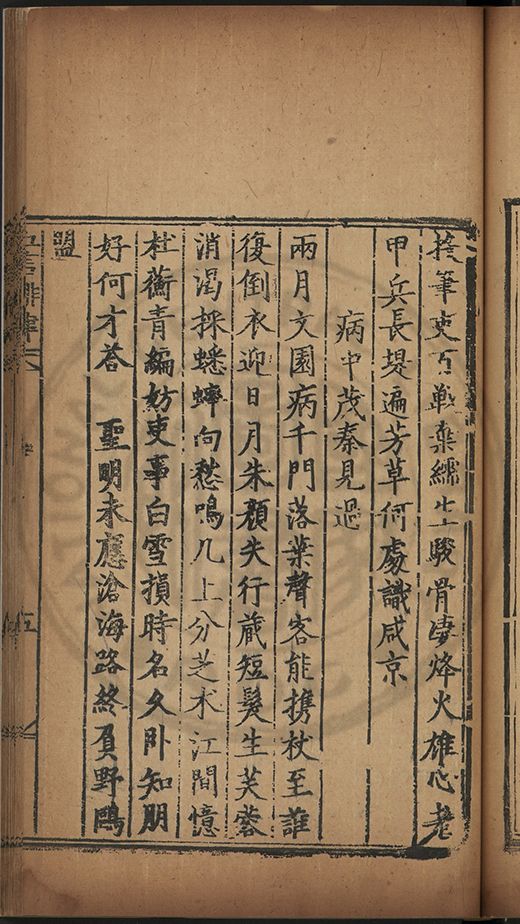 筆吏百戰棄繻生駿骨凄烽火雄心老
甲兵長堤遍芳草何處識咸京
病中茂秦見過
兩月文園病千門落葉聲客能携杖至誰
復倒衣迎日月朱顏失行藏短髮生芙蓉
消渴採蟋蟀向愁鳴几上分芝朮江間憶
杜蘅青編妨吏事白雪損時名久卧知朋
好何才荅　聖明未應滄海路終負野鷗
盟
五言排律